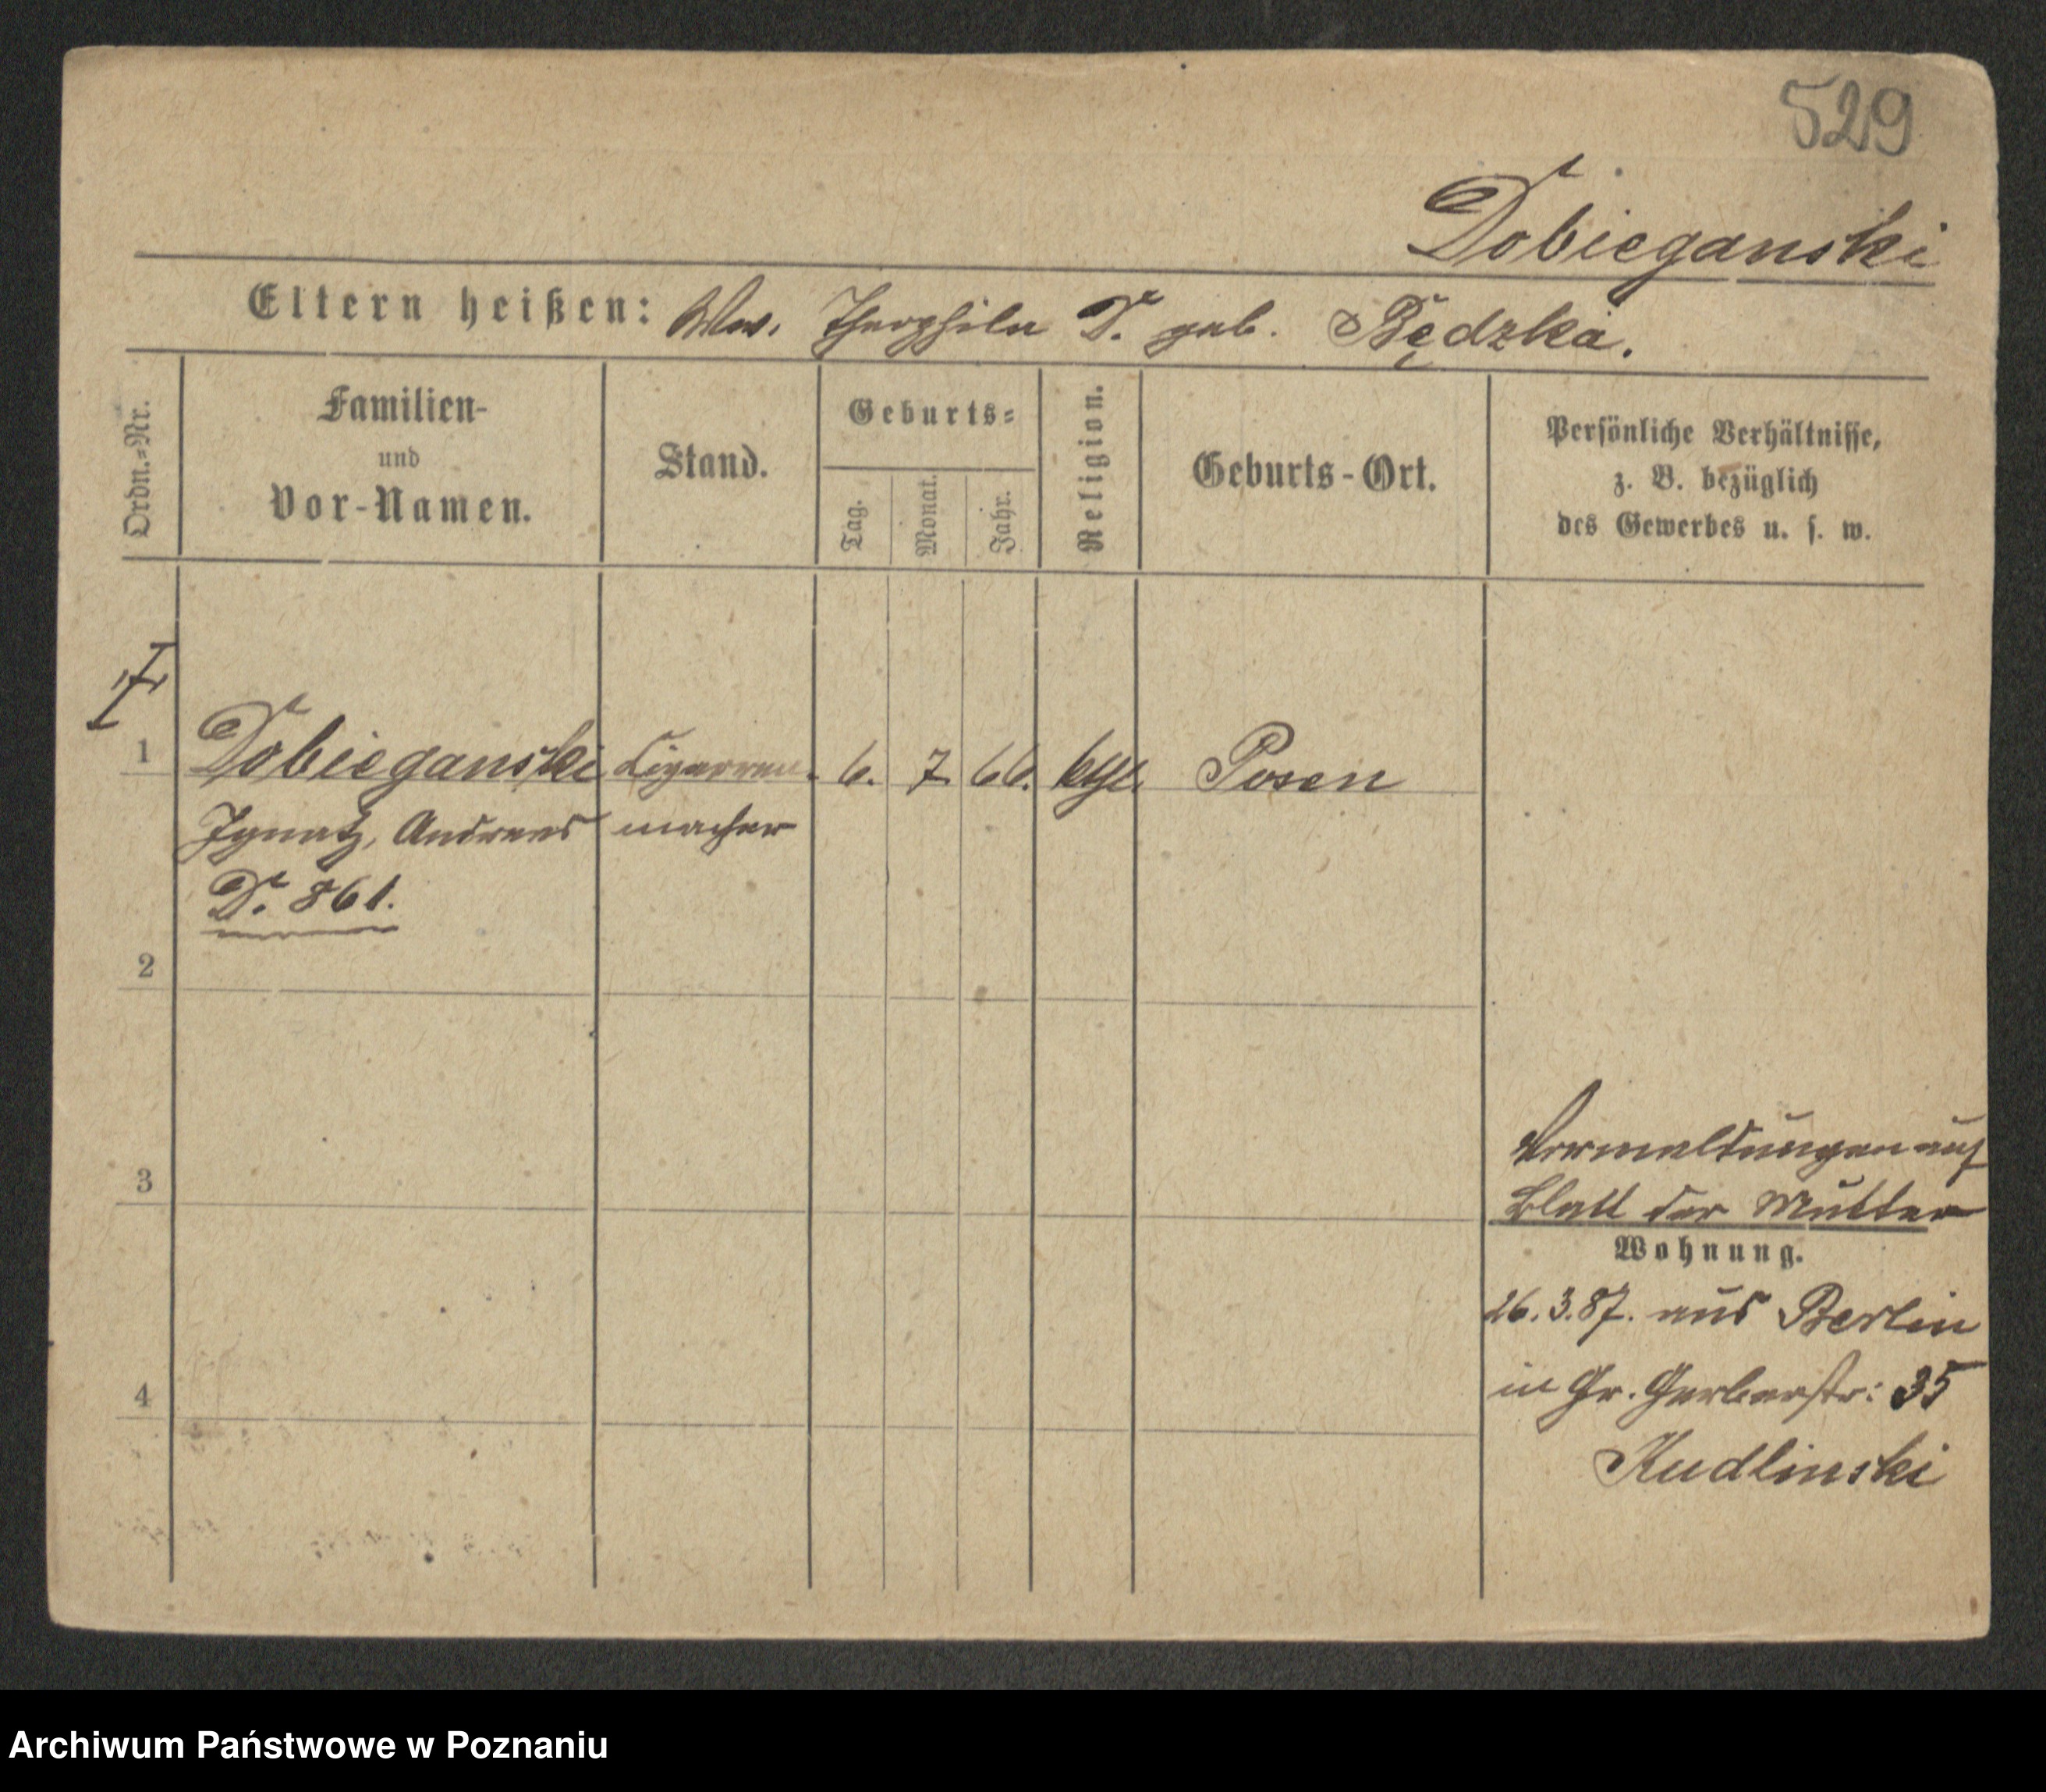 529
Dobieganski
Eltern heißen: Ww. Theophila D. geb. Będzka.
Ordn.=Nr.
Familien-
und
Vor-Namen.
Stand.
Geburts=
Tag.
Monat.
Jahr.
Religion.
Geburts-Ort.
Persönliche Verhältnisse,
z. B. bezüglich
des Gewerbes u. s. w.
1 Dobieganski Cigarren- 6. 7. 66. kth. Posen
Ignatz, Andreas macher
D. 861.
2
3
4
Vormeldungen auf
Blatt der Mutter
Wohnung.
26.3.87. aus Berlin
in Gr. Gerberstr: 35
Kudlinski
Archiwum Państwowe w Poznaniu